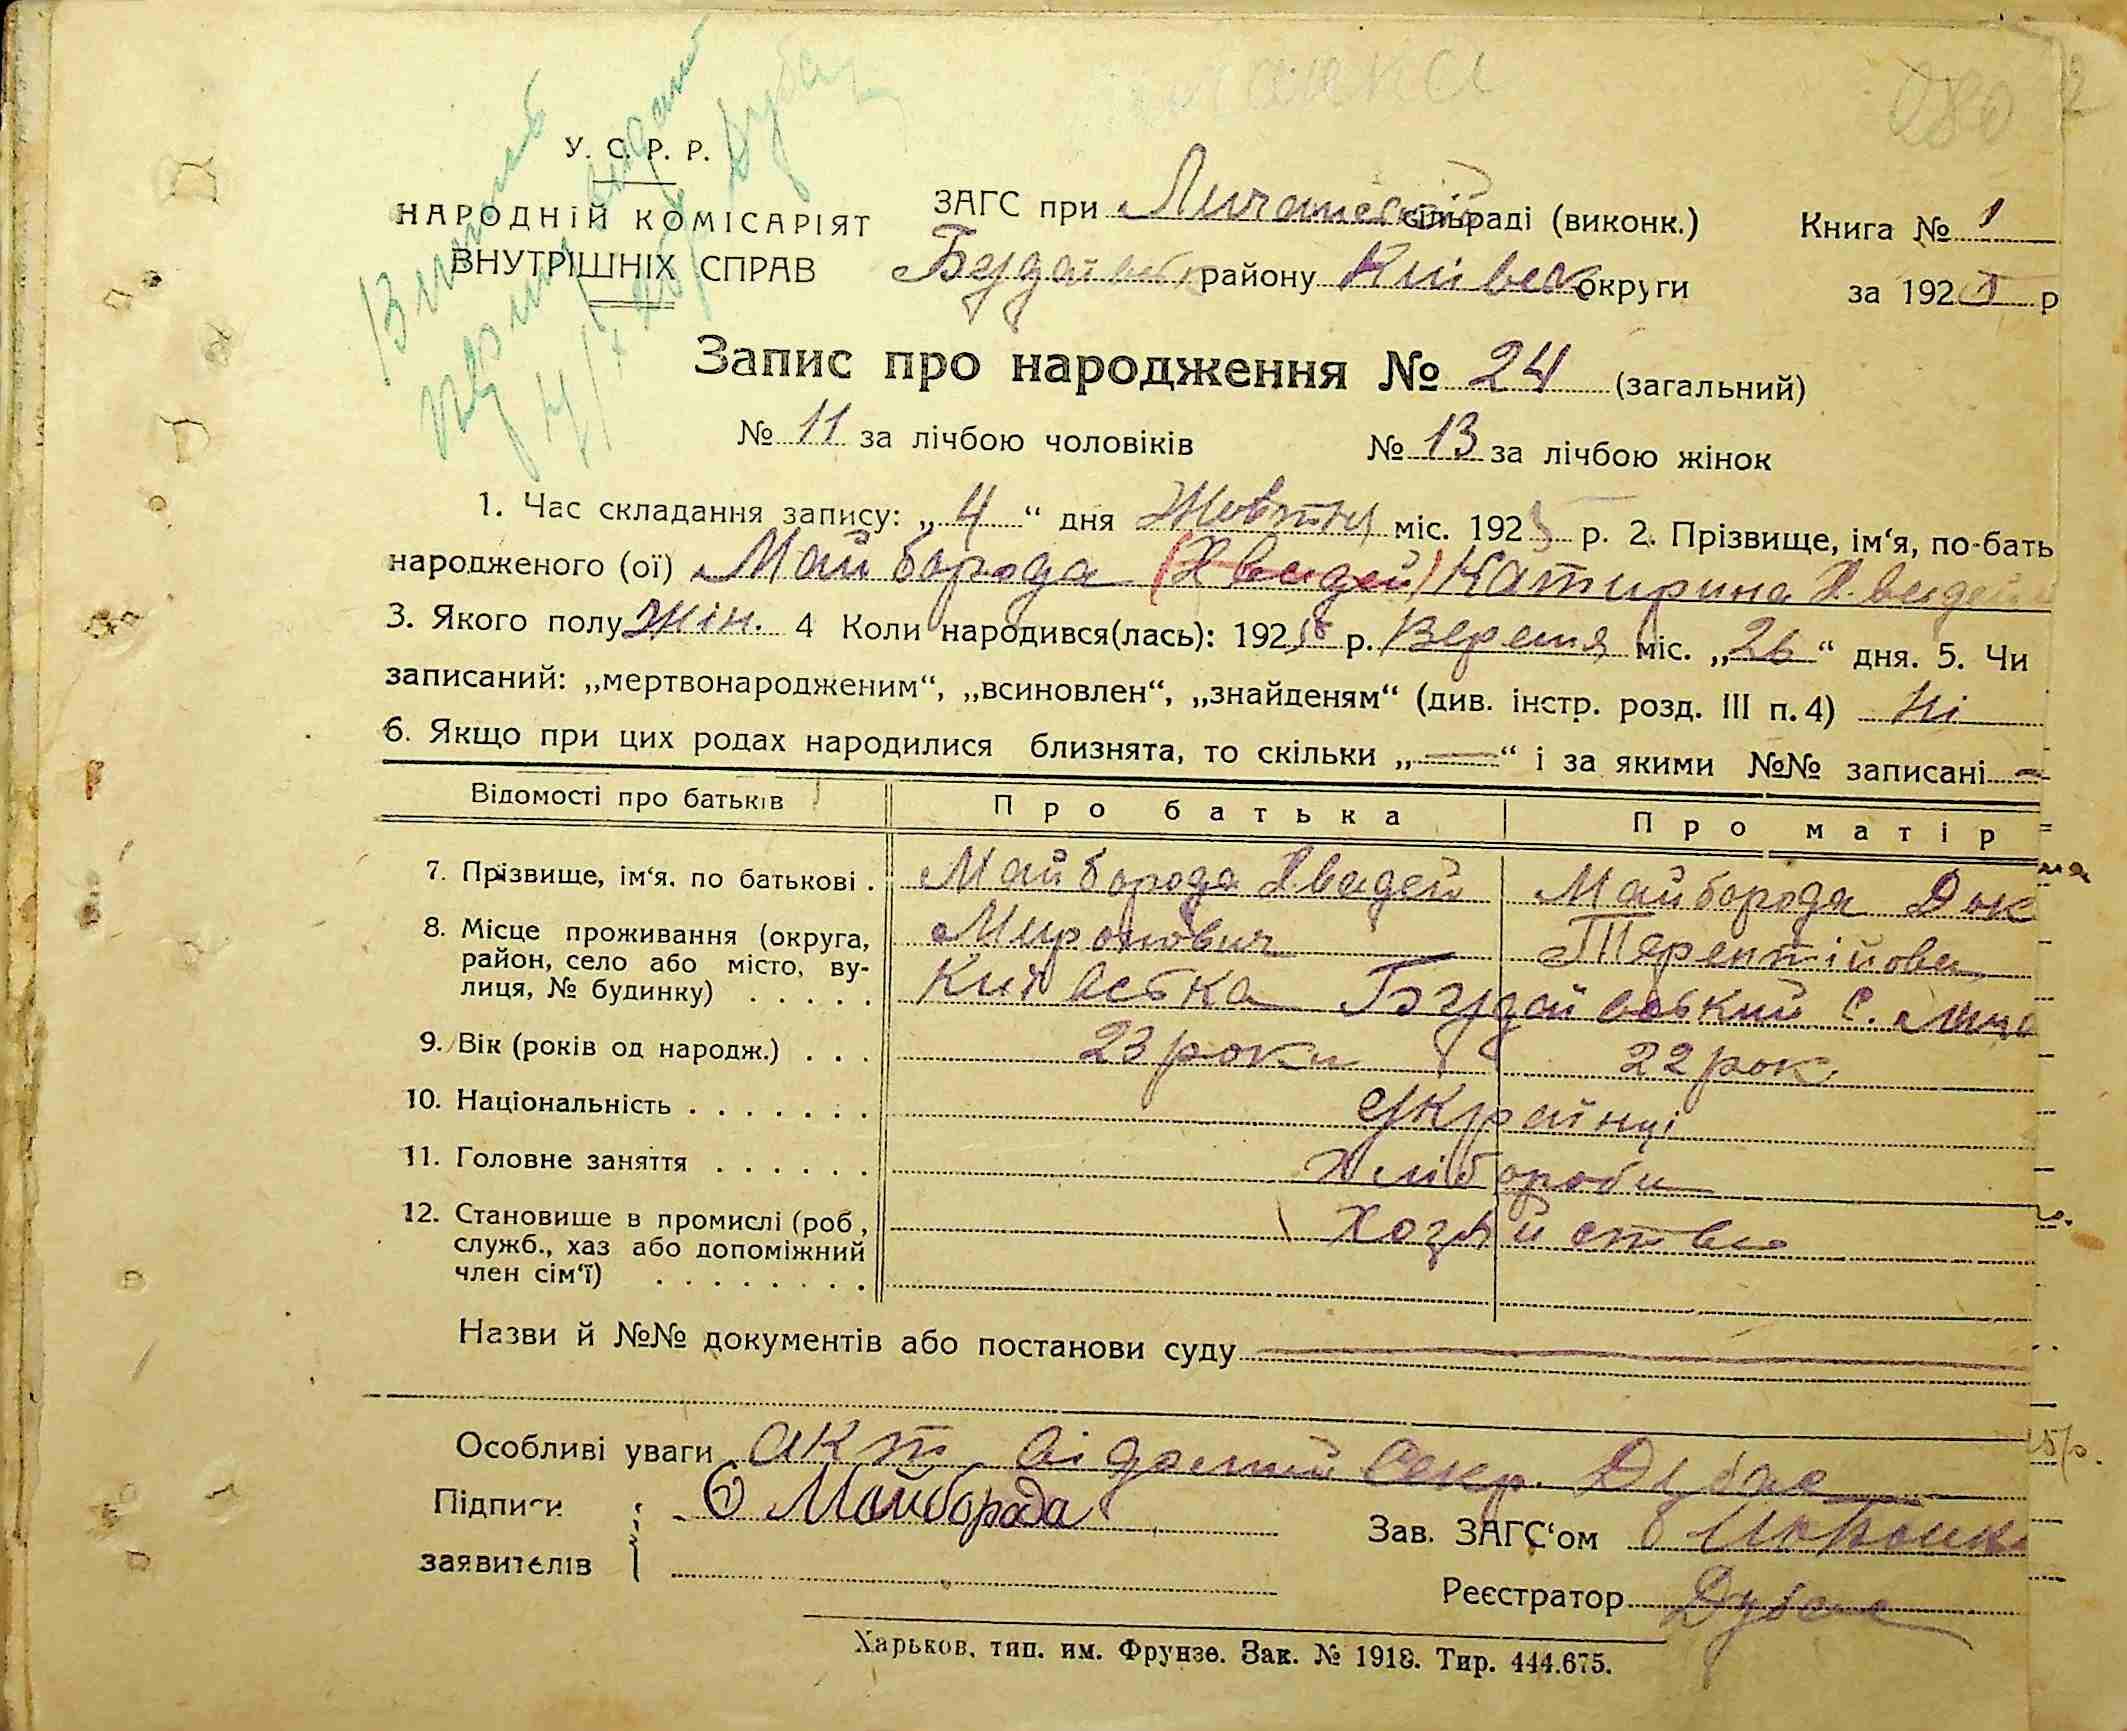 У. С. Р. Р.
НАРОДНІЙ КОМІСАРІЯТ
ВНУТРІШНІХ СПРАВ
ЗАГС при сільраді (виконк.)
району округи
Книга № 1
за 192 р
Запис про народження № 24 (загальний)
№ 11 за лічбою чоловіків № 13 за лічбою жінок
1. Час складання запису: „ 4 “ дня Жовтня міс. 1925 р. 2. Прізвище, ім‘я, по-бать
народженого (ої) Майборода (Хведей) Катирина Хведей
3. Якого полу жін. 4 Коли народився(лась): 1925 р. Вересня міс. „ 26 “ дня. 5. Чи
записаний: „мертвонародженим“, „всиновлен“, „знайденям“ (див. інстр. розд. III п. 4) ні
6. Якщо при цих родах народилися близнята, то скільки „ — “ і за якими №№ записані —
Відомості про батьків Про батька Про матір
7. Прізвище, ім‘я. по батькові . Майборода Хведей Майборода Док
8. Місце проживання (округа, Миронович Терентійова
район, село або місто, ву-
лиця, № будинку) . . . . . Київська Будаївський с.
9. Вік (років од народж.) . . . 23 роки 22 рок
10. Національність . . . . . . . Українці
11. Головне заняття . . . . . . Хлібороби
12. Становище в промислі (роб, Хозяйство
служб., хаз або допоміжний
член сім‘ї) . . . . . . . .
Назви й №№ документів або постанови суду —
Особливі уваги акт секр. Дубас
Підписи Майборода
заявителів
Зав. ЗАГС‘ом
Реєстратор Дубас
Харьков, тип. им. Фрунзе. Зак. № 1918. Тир. 444.675.